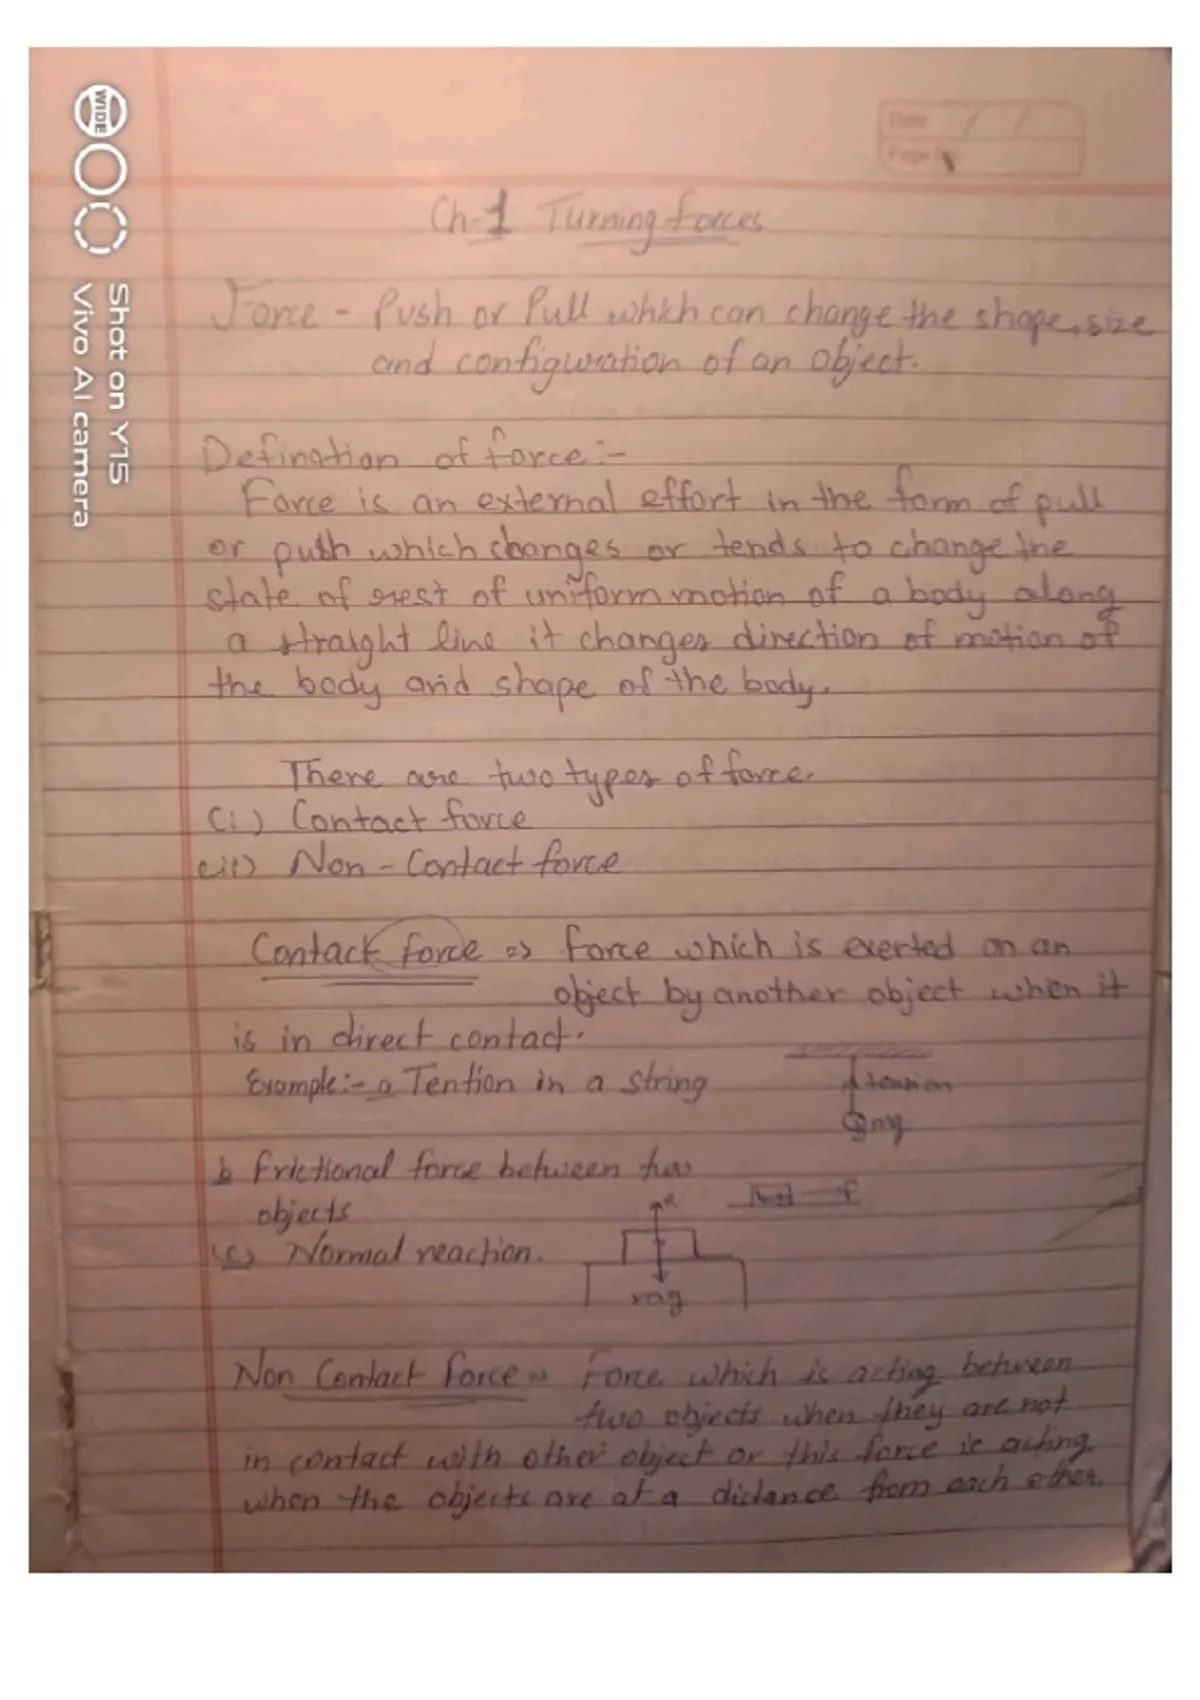 Date / /
Page
Ch-1 Turning forces
Force - Push or Pull which can change the shape, size
and configuration of an object.
Defination of force :-
Force is an external effort in the form of pull
or puth which changes or tends to change the
state of rest of uniform motion of a body along
a straight line it changes direction of motion of
the body and shape of the body.
There are two types of force.
(i) Contact force
(ii) Non - Contact force
Contack force => force which is exerted on an
object by another object when it
is in direct contact.
Example:- a Tention in a string
tension
mg
b frictional force between two
objects
F
(c) Normal reaction.
R
mg
Non Contact force => Force which is acting between
two objects when they are not
in contact with other object or this force is acting
when the objects are at a distance from each other.
WIDE
Shot on Y15
Vivo AI camera